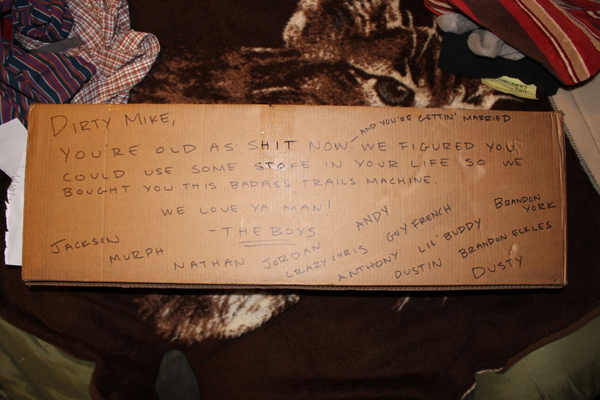 DIRTY MIKE,
AND YOU'RE GETTIN' MARRIED
YOU'RE OLD AS SHIT NOW. WE FIGURED YOU
COULD USE SOME STOKE IN YOUR LIFE SO WE
BOUGHT YOU THIS BADASS TRAILS MACHINE.
WE LOVE YA MAN!
- THE BOYS
JACKSON
MURPH
NATHAN
JORDAN
CRAZY CHRIS
ANDY
GUY FRENCH
ANTHONY
LIL' BUDDY
DUSTIN
BRANDON
YORK
BRANDON ECKLES
DUSTY